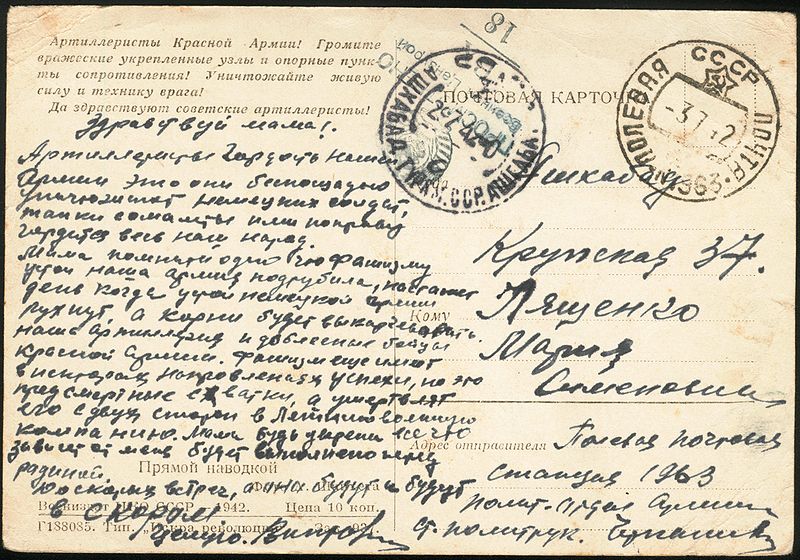 Артиллеристы Красной Армии! Громите
вражеские укрепленные узлы и опорные пунк-
ты сопротивления! Уничтожайте живую
силу и технику врага!
Да здравствуют советские артиллеристы!
Здравствуй мама!
Артиллеристы гордость нашей
Армии это они беспощадно
уничтожают немецких солдат,
танки самолеты ими по праву
гордится весь наш народ.
Мама помни одно что фашизму
наша армия подрубила, настанет
день когда немецкой армии
рухнут, а корни будет выкорчевывать
наша артиллерия и доблестные бойцы
красной армии. Фашизм еще имеет
в некоторых направлениях успехи, но это
предсмертные схватки, а умертвлят
его с двух сторон в летнюю военную
кампанию. Мама будь уверена все что
зависит от меня будет выполнено перед
родиной.
Прямой наводкой
До скорых встреч, а они будут и будут
в скором
Воениздат НКО СССР 1942. Цена 10 коп.
Г188085. Тип. „Искра революции“ Зак.
18
ПОЧТОВАЯ КАРТОЧКА
АШХАБАД ТУРКМ. ССР
СССР
ПОЛЕВАЯ ПОЧТА
963
Ашхабад
Крупская 37.
Кому Лященко
Мария
Семеновна
Адрес отправителя Полевая почтовая
станция 1963
полит-отдел Армии
ст. политрук.